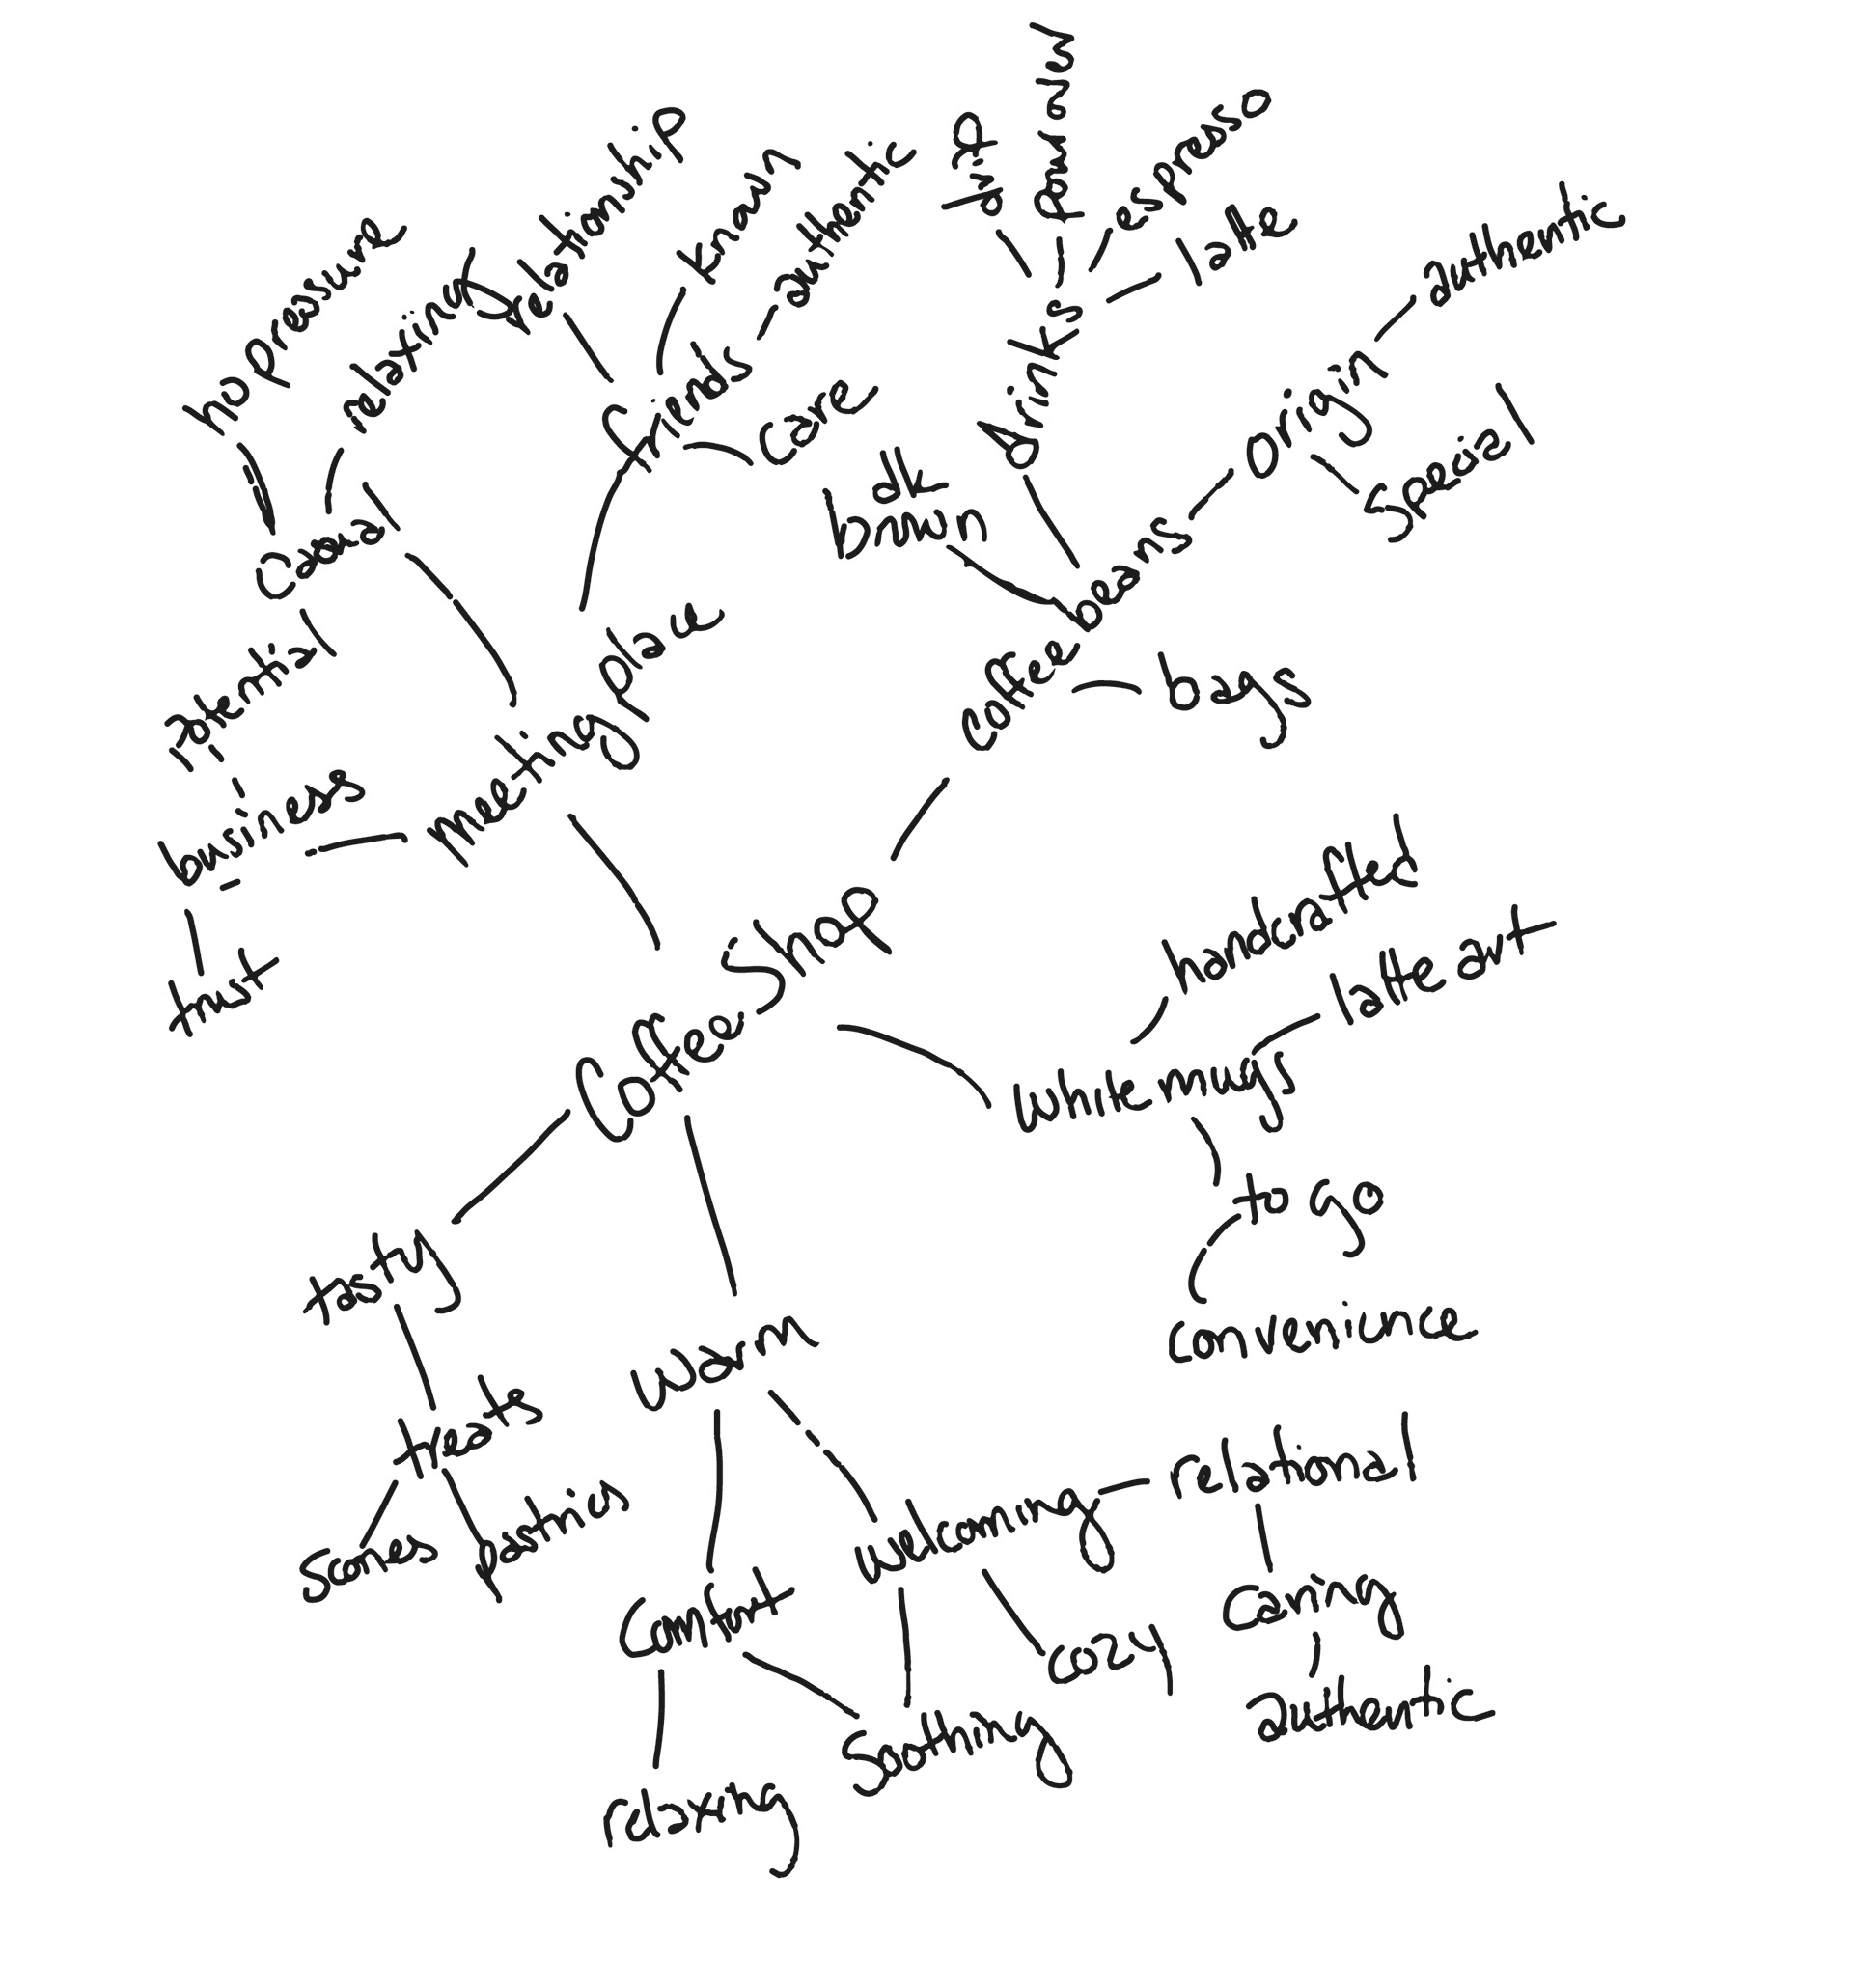 no pressure
relaxing
relationship
known
authentic
drip
pour over
espresso
latte
care
drinks
origin
authentic
special
dark
brown
casual
potential
business
trust
meeting place
coffee beans
bags
Coffee Shop
handcrafted
latte art
white mugs
to go
convenience
tasty
treats
scones
pastries
warm
comfort
relaxing
welcoming
relational
caring
authentic
cozy
soothing